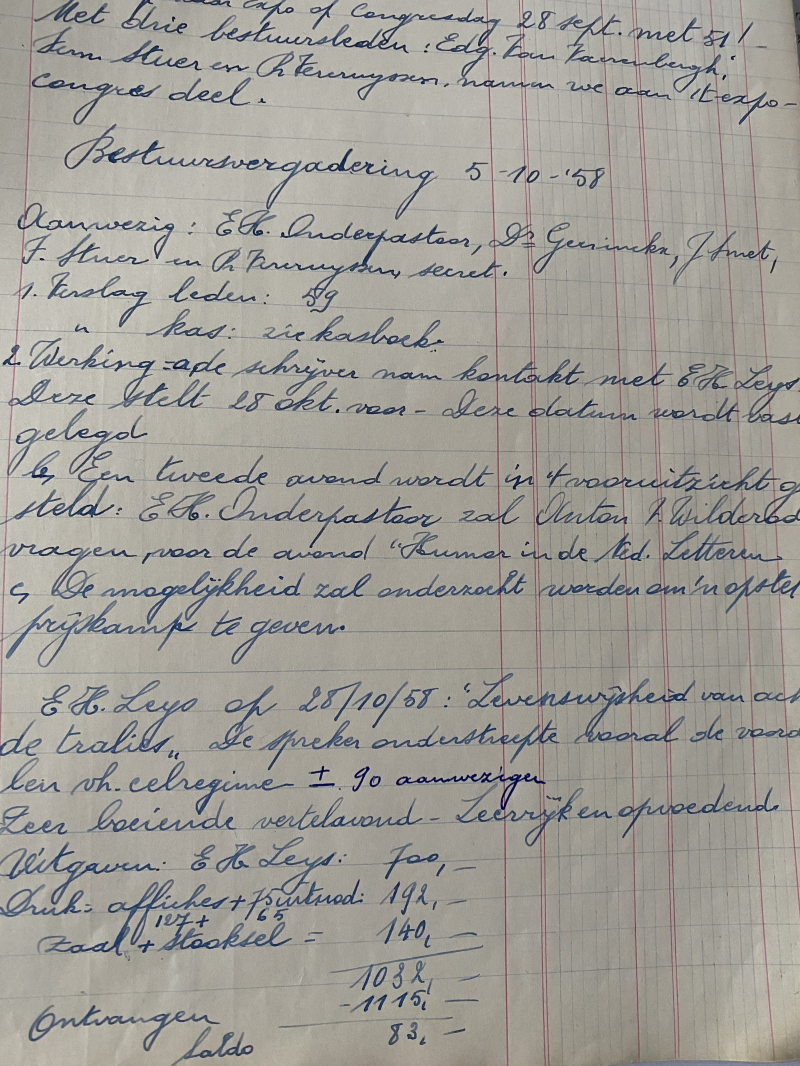 expo of Congresdag 28 sept. met 51!
Met drie bestuursleden: Edg. Van
Stuer en namen we aan 't expo-
congres deel.
Bestuursvergadering 5-10-'58
Aanwezig: E.H. Onderpastoor, Dr Geerinckx, J. Smet,
F. Stuer en secret.
1. Verslag leden: 59
" kas: zie kasboek.
2. Werking = a, de schrijver nam kontakt met E.H. Leys.
Deze stelt 28 okt. voor - Deze datum wordt vast
gelegd
b, Een tweede avond wordt in 't vooruitzicht g
steld: E.H. Onderpastoor zal Anton v. Wilderod
vragen, voor de avond "Humor in de Ned. Letteren
c, De mogelijkheid zal onderzocht worden om 'n opstel
prijskamp te geven.
E.H. Leys op 28/10/58: "Levenswijsheid van ach
de tralies„ De spreker onderstreepte vooral de voord
len vh. celregime ± 90 aanwezigen
Zeer boeiende vertelavond - Leerrijk en opvoedend
Uitgaven: E H Leys: 700,-
Druk= affiches + 75 uitnod: 192,-
127 + 65
Zaal + stooksel = 140,-
1032,-
Ontvangen -1115,-
Saldo 83,-